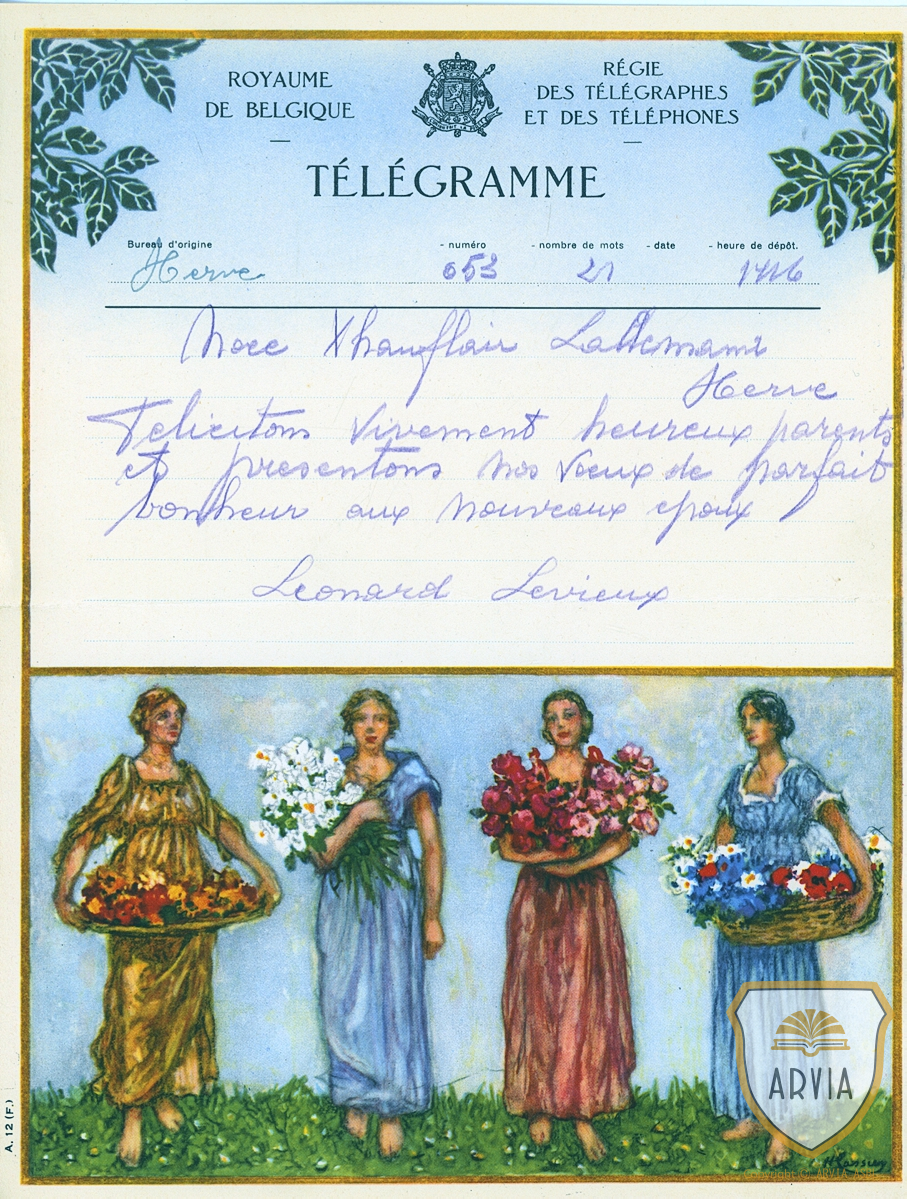 ROYAUME
DE BELGIQUE
RÉGIE
DES TÉLÉGRAPHES
ET DES TÉLÉPHONES
TÉLÉGRAMME
Bureau d'origine - numéro - nombre de mots - date - heure de dépôt.
Herve 653 21 1416
Noce Xhauflair Lallemand
Herve
Felicitons vivement heureux parents
et presentons nos voeux de parfait
bonheur aux nouveaux epoux
Leonard Levieux
A. 12 (F.)
ARVIA